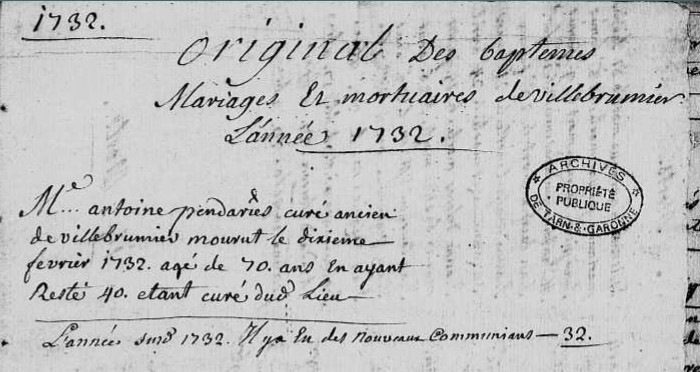 1732.
Original Des baptemes
Mariages Et mortuaires de villebrumier
L'année 1732.
ARCHIVES
PROPRIÉTÉ
PUBLIQUE
DE TARN & GARONNE
Me antoine pendariés curé ancien
de villebrumier mourut le dixieme
fevrier 1732. agé de 70. ans En ayant
Resté 40. etant curé dud. Lieu
L'année susd 1732. Il y a Eu des nouveaux Communians — 32.